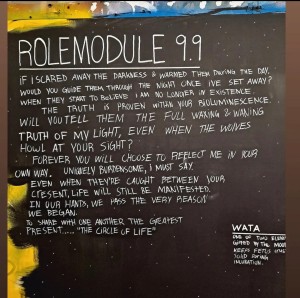 ROLEMODULE 9.9
IF I SCARED AWAY THE DARKNESS & WARMED THEM DURING THE DAY,
WOULD YOU GUIDE THEM THROUGH THE NIGHT ONCE I'VE SET AWAY?
WHEN THEY START TO BELIEVE I AM NO LONGER IN EXISTENCE.
THE TRUTH IS PROVEN WITHIN YOUR BIOLUMINESCENCE.
WILL YOU TELL THEM THE FULL WAXING & WANING
TRUTH OF MY LIGHT, EVEN WHEN THE WOLVES
HOWL AT YOUR SIGHT?
FOREVER YOU WILL CHOOSE TO REFLECT ME IN YOUR
OWN WAY. UNIQUELY BURDENSOME, I MUST SAY.
EVEN WHEN THEY'RE CAUGHT BETWEEN YOUR
CRESENT, LIFE WILL STILL BE MANIFESTED.
IN OUR HANDS, WE PASS THE VERY REASON
WE BEGAN.
TO SHARE WITH ONE ANOTHER THE GREATEST
PRESENT..... "THE CIRCLE OF LIFE"
WATA
ONE OF TWO
BY THE
KEEPS FETUS
DURING
INCUBATION.